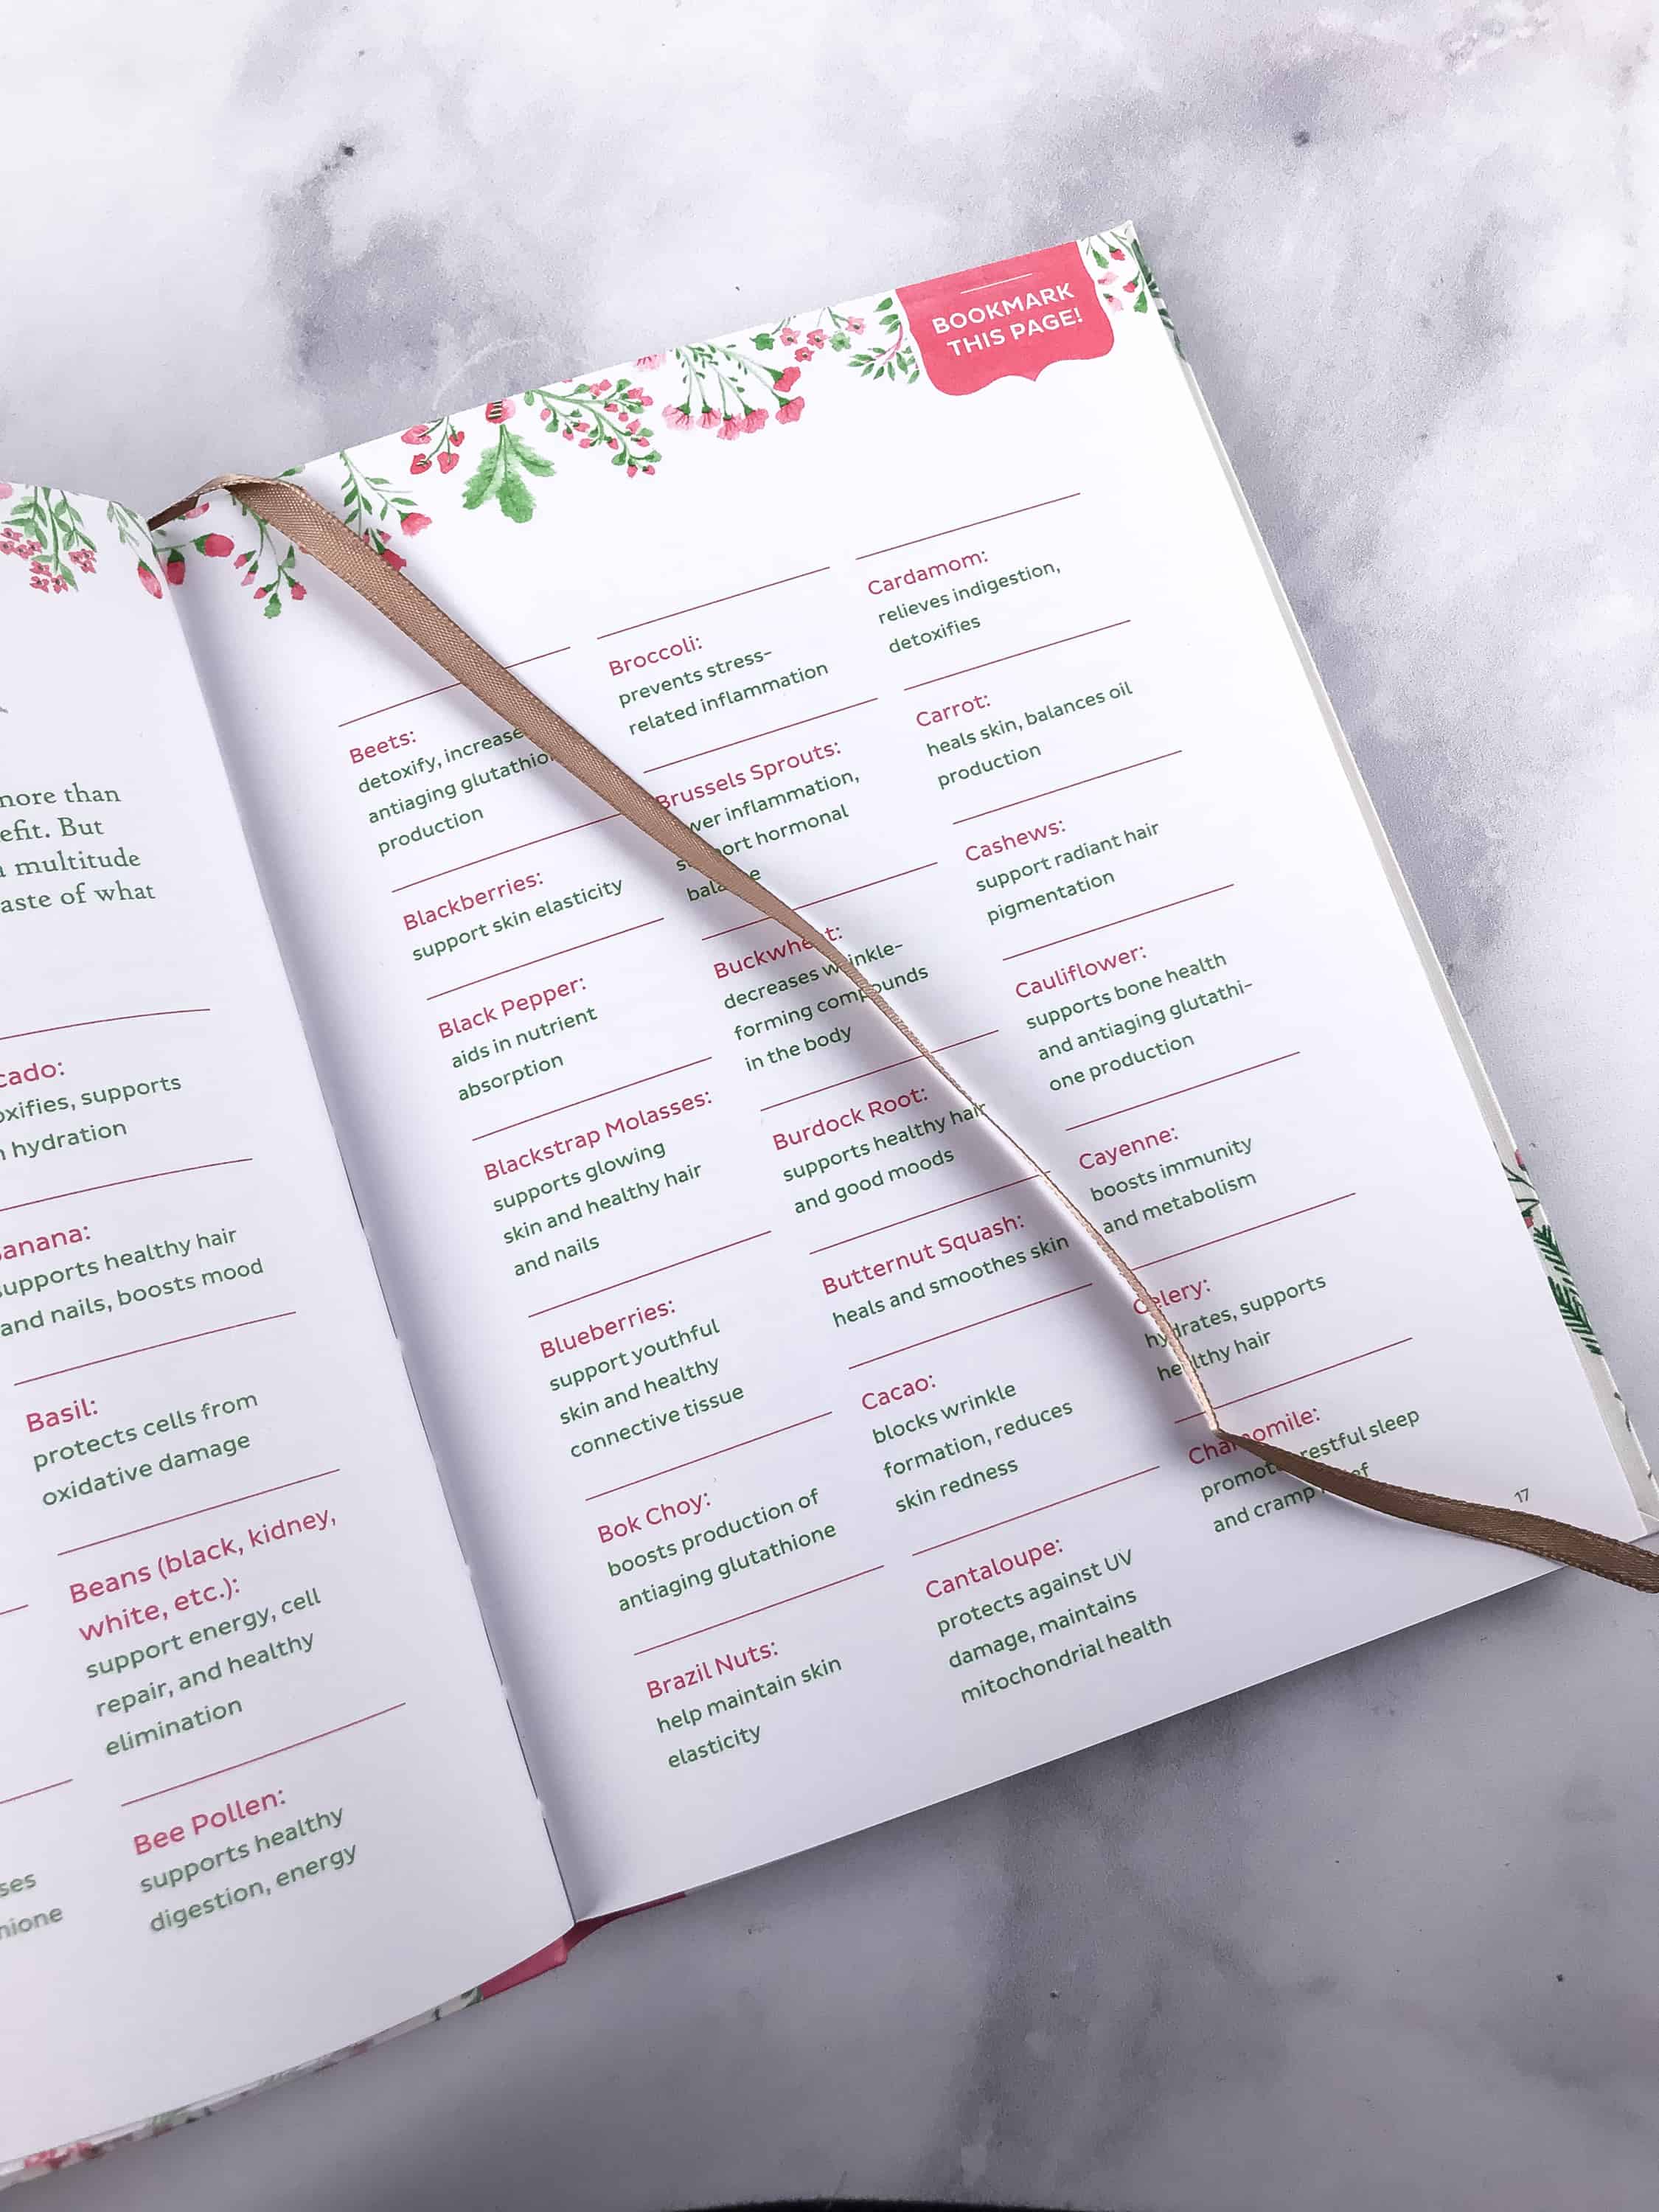 more than
But
multitude
of what
supports
hydration
supports healthy hair
and nails, boosts mood
Basil:
protects cells from
oxidative damage
Beans (black, kidney,
white, etc.):
support energy, cell
repair, and healthy
elimination
Bee Pollen:
supports healthy
digestion, energy
BOOKMARK
THIS PAGE!
Beets:
detoxify, increase
antiaging
production
Blackberries:
support skin elasticity
Black Pepper:
aids in nutrient
absorption
Blackstrap Molasses:
supports glowing
skin and healthy hair
and nails
Blueberries:
support youthful
skin and healthy
connective tissue
Bok Choy:
boosts production of
antiaging glutathione
Brazil Nuts:
help maintain skin
elasticity
Broccoli:
prevents stress-
related inflammation
Brussels Sprouts:
inflammation,
support hormonal
balance
Buckwheat:
decreases wrinkle-
forming compounds
in the body
Burdock Root:
supports healthy hair
and good moods
Butternut Squash:
heals and smoothes skin
Cacao:
blocks wrinkle
formation, reduces
skin redness
Cantaloupe:
protects against UV
damage, maintains
mitochondrial health
Cardamom:
relieves indigestion,
detoxifies
Carrot:
heals skin, balances oil
production
Cashews:
support radiant hair
pigmentation
Cauliflower:
supports bone health
and antiaging glutathi-
one production
Cayenne:
boosts immunity
and metabolism
Celery:
hydrates, supports
healthy hair
Chamomile:
restful sleep
and cramp
17